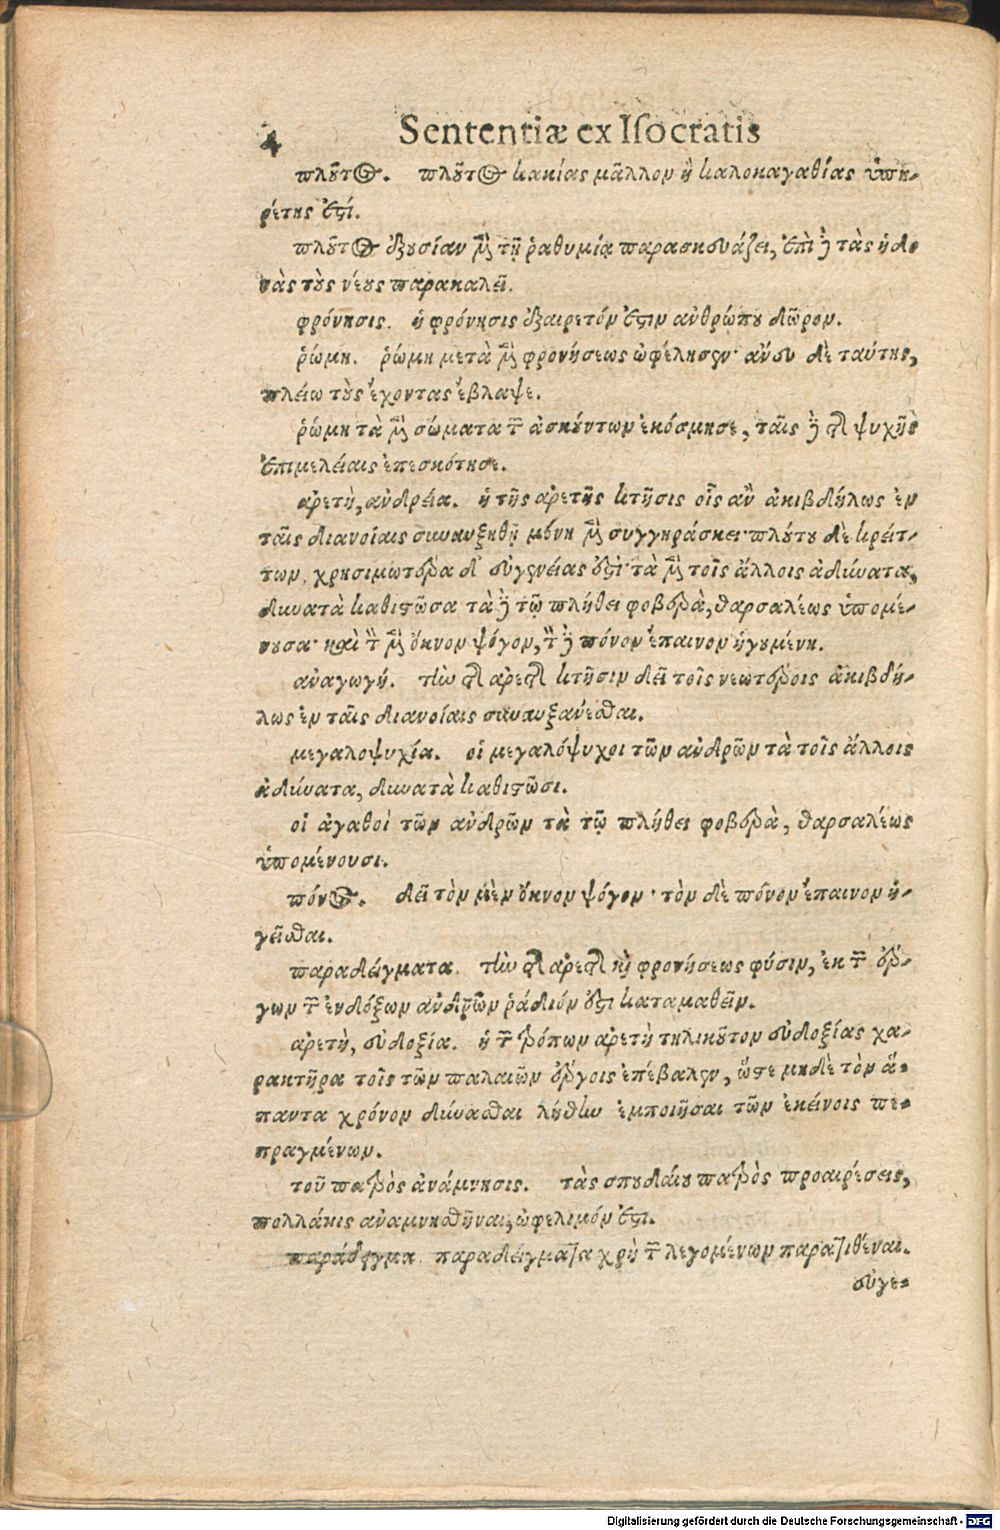 4 Sententiæ ex Iſocratis
πλοῦτος. πλοῦτος κακίας μᾶλλον ἢ καλοκαγαθίας ὑπη-
ρέτης ἐστί.
πλοῦτος ἐξουσίαν μὲν τῇ ῥαθυμίᾳ παρασκευάζει, ἐπὶ δὲ τὰς ἡδο-
νὰς τοὺς νέους παρακαλεῖ.
φρόνησις. ἡ φρόνησις ἐξαιρετόν ἐστιν ἀνθρώπου δῶρον.
ῥώμη. ῥώμη μετὰ μὲν φρονήσεως ὠφέλησεν· ἄνευ δὲ ταύτης,
πλείω τοὺς ἔχοντας ἔβλαψε.
ῥώμη τὰ μὲν σώματα τῶν ἀσκούντων ἐκόσμησε, ταῖς δὲ τῆς ψυχῆς
ἐπιμελείαις ἐπεσκότησε.
ἀρετὴ, ἀνδρεία. ἡ τῆς ἀρετῆς κτῆσις οἷς ἂν ἀκιβδήλως ἐν
ταῖς διανοίαις συναυξηθῇ μόνη μὲν συγγηράσκει· πλούτου δὲ κρείτ-
των, χρησιμωτέρα δ' εὐγενείας ἐστὶ· τὰ μὲν τοῖς ἄλλοις ἀδύνατα,
δυνατὰ καθιστῶσα τὰ δὲ τῷ πλήθει φοβερὰ, θαρσαλέως ὑπομέ-
νουσα· καὶ τὸν μὲν ὄκνον ψόγον, τὸν δὲ πόνον ἔπαινον ἡγουμένη.
ἀναγωγή. τὴν τῆς ἀρετῆς κτῆσιν δεῖ τοῖς νεωτέροις ἀκιβδή-
λως ἐν ταῖς διανοίαις συναυξάνεσθαι.
μεγαλοψυχία. οἱ μεγαλόψυχοι τῶν ἀνδρῶν τὰ τοῖς ἄλλοις
ἀδύνατα, δυνατὰ καθιστῶσι.
οἱ ἀγαθοὶ τῶν ἀνδρῶν τὰ τῷ πλήθει φοβερὰ, θαρσαλέως
ὑπομένουσι.
πόνος. δεῖ τὸν μὲν ὄκνον ψόγον· τὸν δὲ πόνον ἔπαινον ἡ-
γεῖσθαι.
παραδείγματα. τὴν τῆς ἀρετῆς καὶ φρονήσεως φύσιν, ἐκ τῶν ἔρ-
γων τῶν ἐνδόξων ἀνδρῶν ῥάδιόν ἐστι καταμαθεῖν.
ἀρετὴ, εὐδοξία. ἡ τῶν τρόπων ἀρετὴ τηλικοῦτον εὐδοξίας χα-
ρακτῆρα τοῖς τῶν παλαιῶν ἔργοις ἐπέβαλεν, ὥστε μηδὲ τὸν ἅ-
παντα χρόνον δύνασθαι λήθην ἐμποιῆσαι τῶν ἐκείνοις πε-
πραγμένων.
τοῦ πατρὸς ἀνάμνησις. τὰς σπουδαίου πατρὸς προαιρέσεις,
πολλάκις ἀναμνησθῆναι, ὠφελιμόν ἐστι.
παράδειγμα. παραδείγματα χρὴ τῶν λεγομένων παρατιθέναι.
εὐγε-
Digitalisierung gefördert durch die Deutsche Forschungsgemeinschaft - DFG